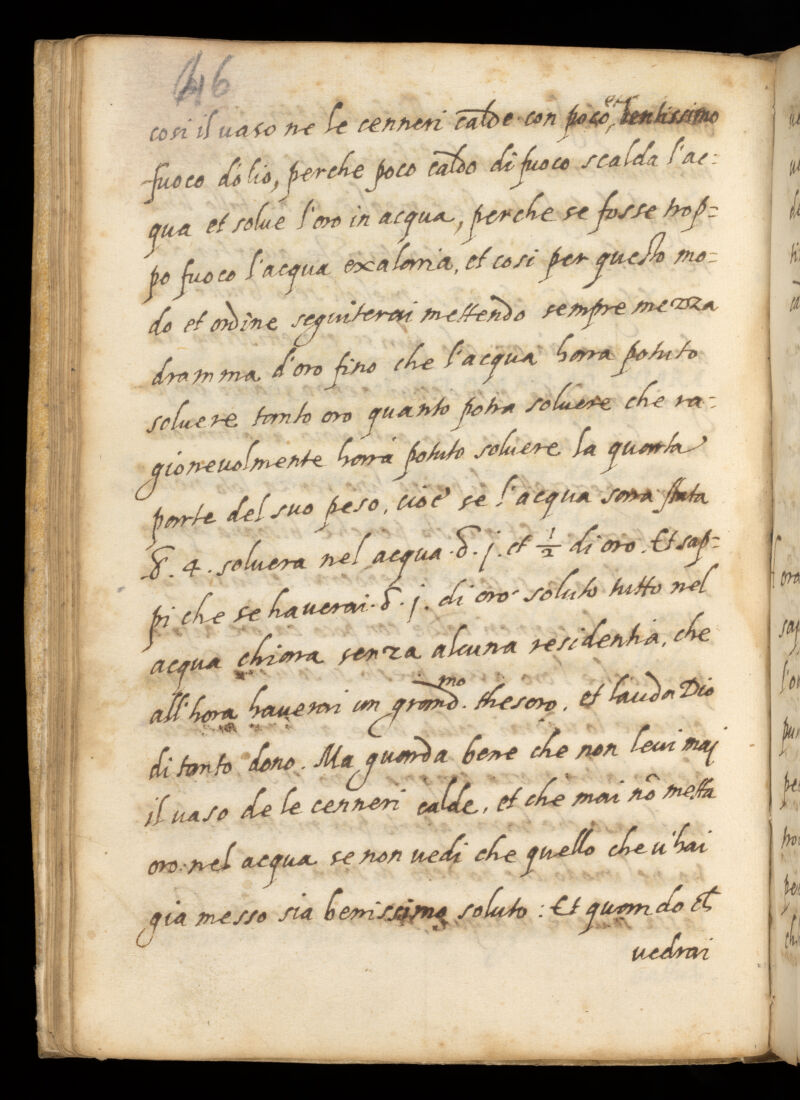 46
cosi il uaso ne le cenneri calde con poco, et lentissimo
fuoco d'olio, perche poco caldo di fuoco scalda l'ac:
qua et solue l'oro in acqua, perche se fosse trop=
po fuoco l'acqua exalarria, et cosi per questo mo=
do et ordine seguiterai mettendo sempre mezza
dramma d'oro fino che l'acqua harra potuto
soluere tanto oro quanto potra soluere che ra=
gioneuolmente harrà potuto soluere la quarta
parte del suo peso, cioe' se l'acqua sarra stata
. 4. soluera nel acqua . j. et ½ di oro. Et sap=
pi che se hauerai . j. di oro soluto tutto nel
acqua chiara senza alcuna residentia, che
all'hora hauerai un grand.mo thesoro. et lauda Dio
di tanto dono. Ma guarda bene che non leui maj
il uaso de le cenneri calde, et che mai nõ metta
oro nel acqua se non uedi che quello che u'hai
gia messo sia benissimo soluto : Et quando
uedrai